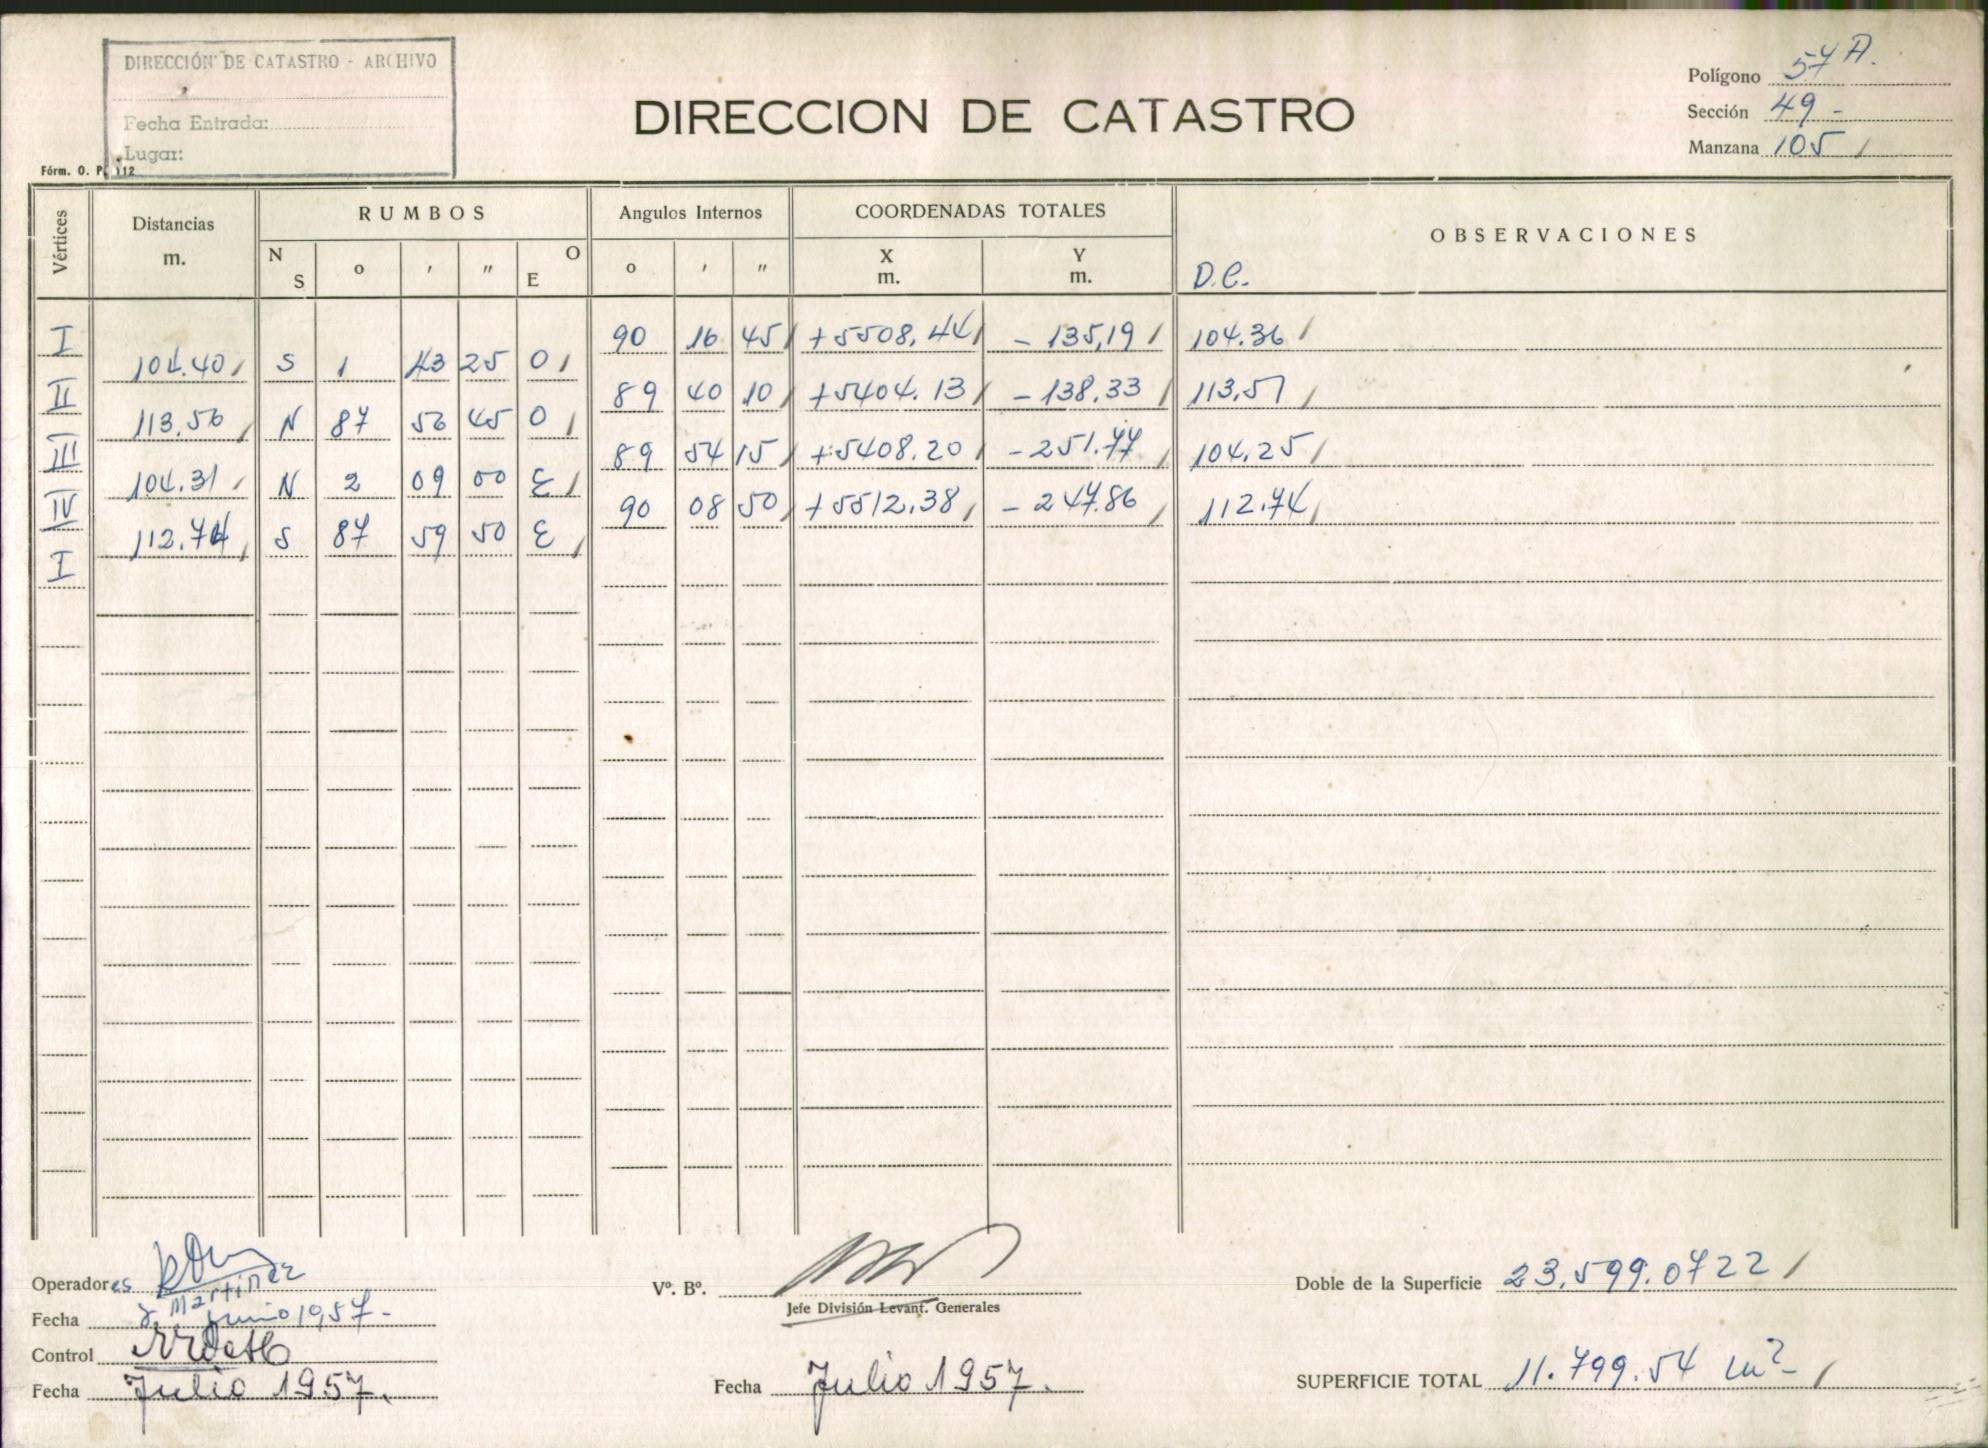 DIRECCIÓN DE CATASTRO - ARCHIVO
Fecha Entrada:
Lugar:
Fórm. O. P. 112
DIRECCION DE CATASTRO
Polígono 57 A.
Sección 49 -
Manzana 105
Vértices Distancias m. RUMBOS Angulos Internos COORDENADAS TOTALES OBSERVACIONES
N S o ' " O E o ' " X m. Y m. D.C.
I 90 16 45 +5508,44 - 135,19 104.36
104.40 S 1 43 25 O
II 89 40 10 +5404.13 - 138.33 113.51
113.56 N 87 56 45 O
III 89 54 15 +5408.20 - 251.77 104.25
104.31 N 2 09 00 E
IV 90 08 50 +5512.38 - 247.86 112.74
112.74 S 87 59 50 E
I
Operadores Martinez
Fecha Junio 1957.-
Control
Fecha Julio 1957.
Vº. Bº.
Jefe División Levant. Generales
Fecha Julio 1957.
Doble de la Superficie 23.599.0722
SUPERFICIE TOTAL 11.799.54 m²-